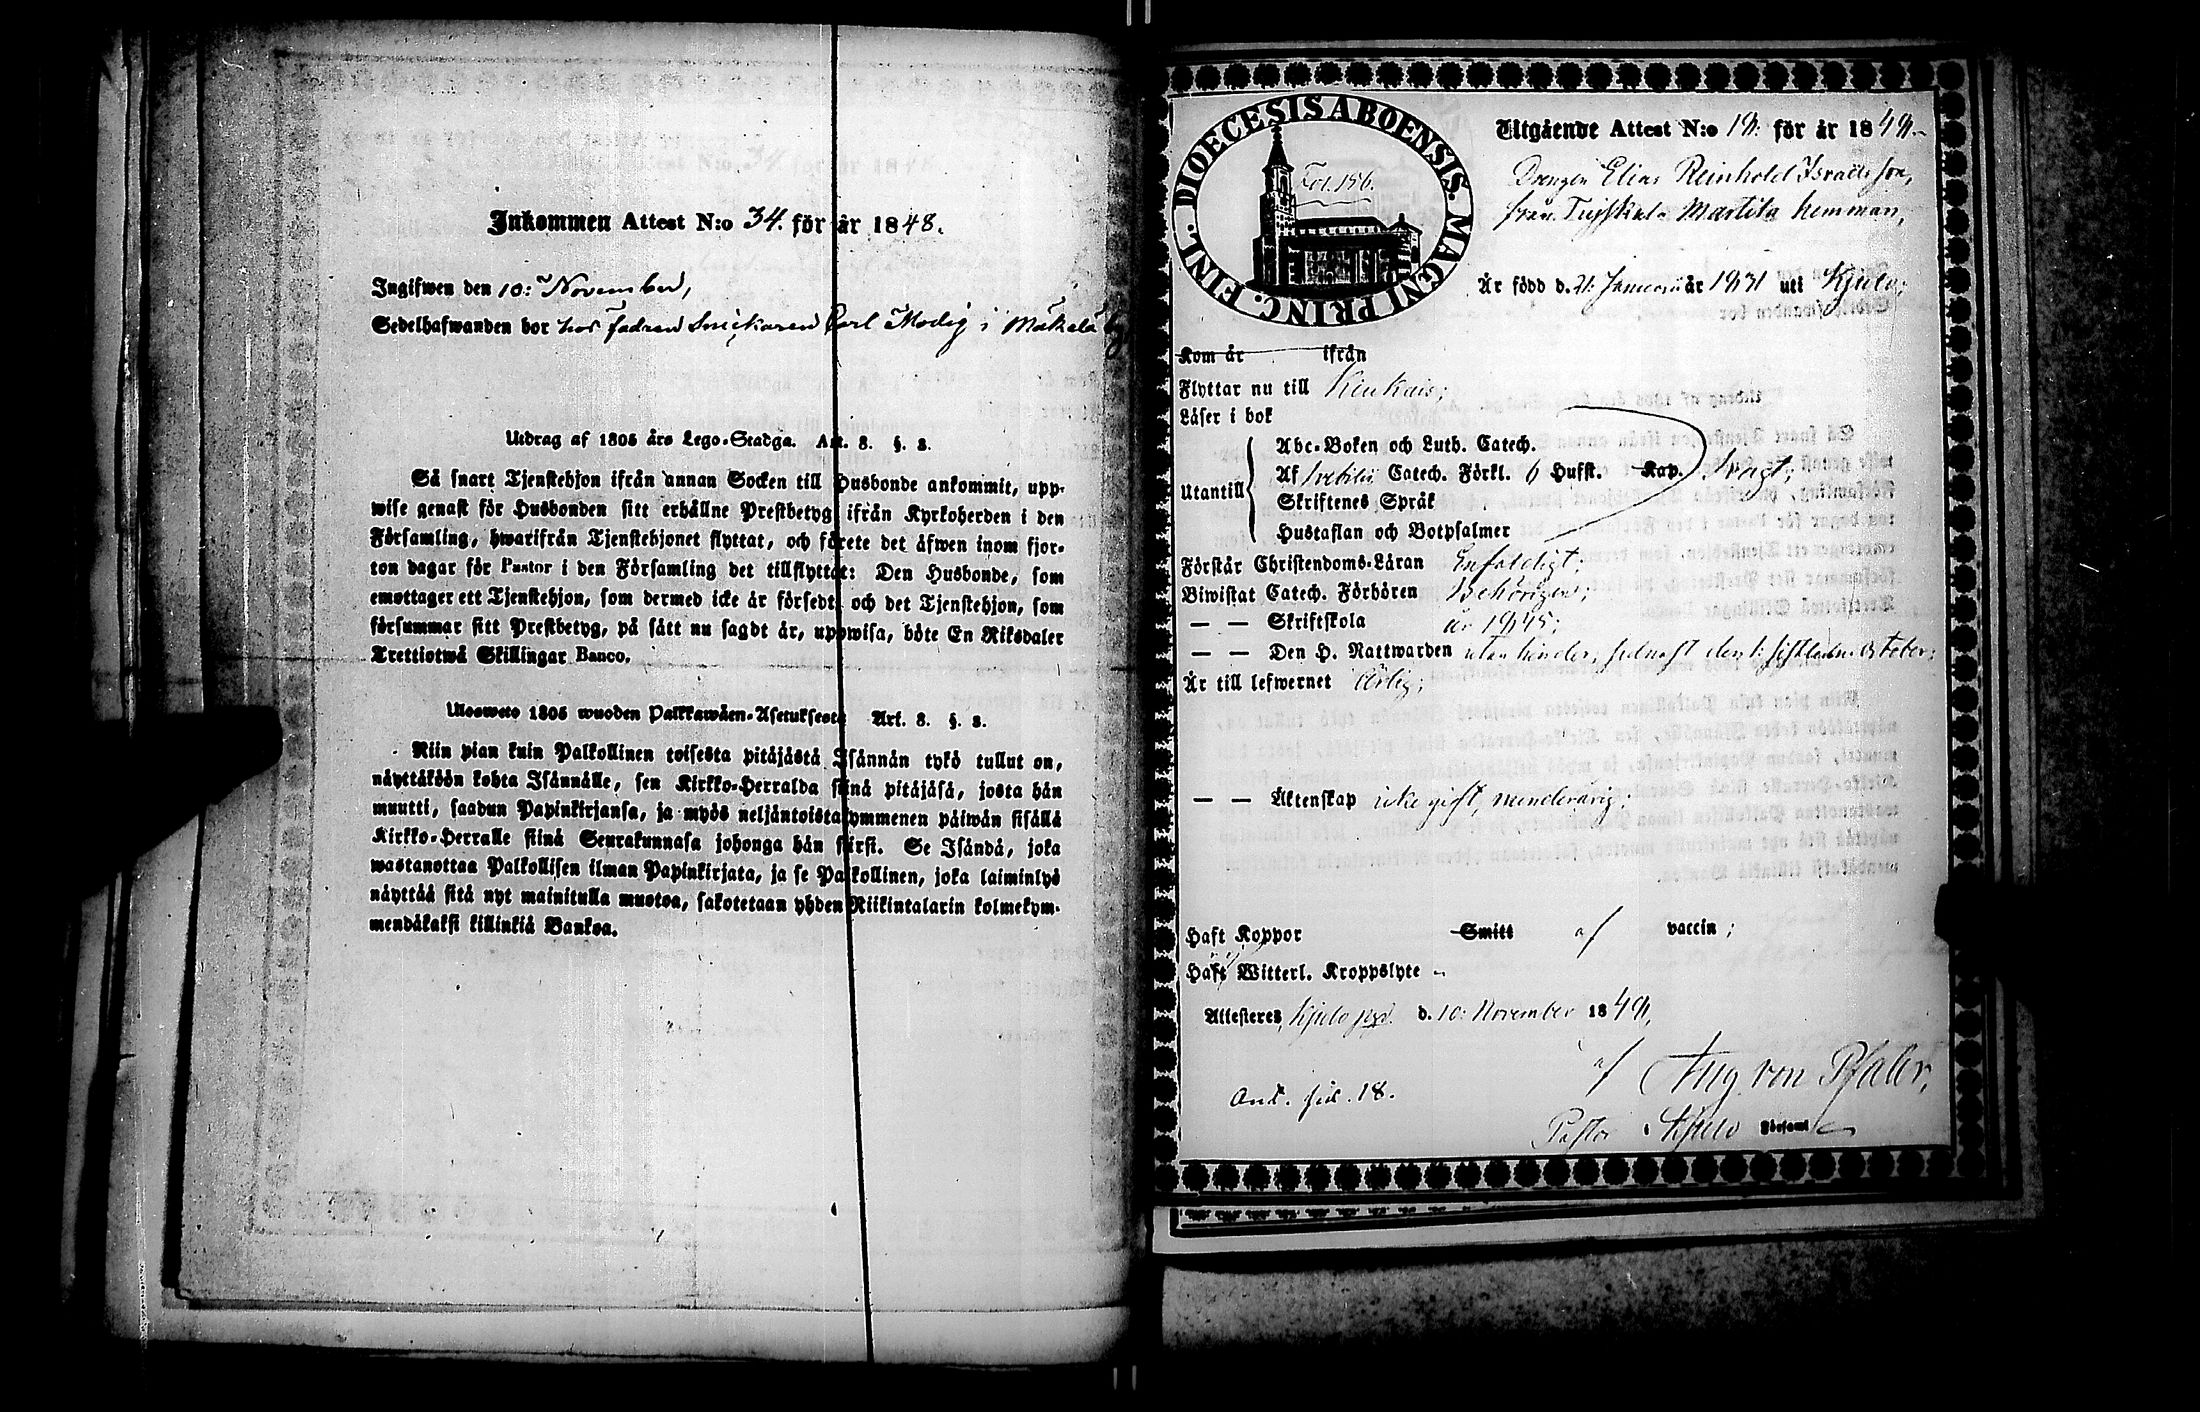 Inkommen Attest N:o 34. för år 1848.
Ingifwen den 10: November,
Sedelhafwanden bor hos fadren Snickaren Carl Modig i Mäkelä
Utdrag af 1805 års Lego-Stadga. Art. 8. §. 3.
Så snart Tjenstehjon ifrån annan Socken till Husbonde ankommit, upp-
wise genast för Husbonden sitt erhållne Prestbetyg ifrån Kyrkoherden i den
Församling, hwarifrån Tjenstehjonet flyttat, och förete det äfwen inom fjor-
ton dagar för Pastor i den Församling det tillflyttat: Den Husbonde, som
emottager ett Tjenstehjon, som dermed icke är försedt, och det Tjenstehjon, som
försummar sitt Prestbetyg, på sätt nu sagdt är, uppwisa, böte En Riksdaler
Trettiotwå Skillingar Banco.
Ulosweto 1805 wuoden Palkkawäen-Asetuksesta Art. 8. §. 3.
Niin pian kuin Palkollinen toisesta pitäjästä Isännän tykö tullut on,
näyttäköön kohta Isännälle, sen Kirkko-Herralda siinä pitäjäsä, josta hän
muutti, saadun Papinkirjansa, ja myös neljäntoistakymmenen päiwän sisällä
Kirkko-Herralle siinä Seurakunnasa johonga hän siirsi. Se Isändä, joka
wastanottaa Palkollisen ilman Papinkirjata, ja se Palkollinen, joka laiminlyö
näyttää sitä nyt mainitulla muotoa, sakotetaan yhden Riikintalarin kolmekym-
mendäkaksi killinkiä Bankoa.
DIOECESIS ABOENSIS. MAGNI PRINC. FINL.
Fol. 156.
Utgående Attest N:o 18: för år 1848.
Drengen Elias Reinhold Israelsson,
från Martila hemman,
Är född d. 21: Januarii år 1831 uti Kjulo;
Kom år ifrån
Flyttar nu till Kiukais;
Läser i bok
Utantill
Abc-Boken och Luth. Catech.
Af Svebilii Catech. Förkl. 6 Hufst. Kap. Svagt;
Skriftenes Språk
Hustaflan och Botpsalmer
Förstår Christendoms-Läran Enfaldigt;
Biwistat Catech. Förhören Behörigen;
— — Skriftskola år 1845;
— — Den H. Nattwarden utan hinder, sednast den 1: October;
Är till lefwernet Ärlig;
— — Äktenskap icke gift, minderårig;
Haft Koppor Smitt af vaccin;
Haft Witterl. Kroppslyte
Attesteres, Kjulo d. 10: November 1848,
af Aug. von Pfaler,
Ank. fol. 18.
Pastor i Kjulo Församl